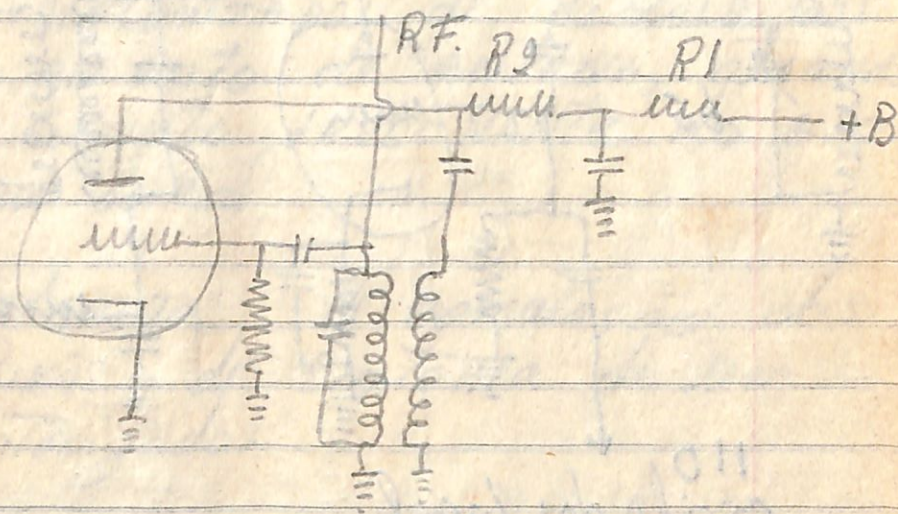 RF.
R2 R1
+B